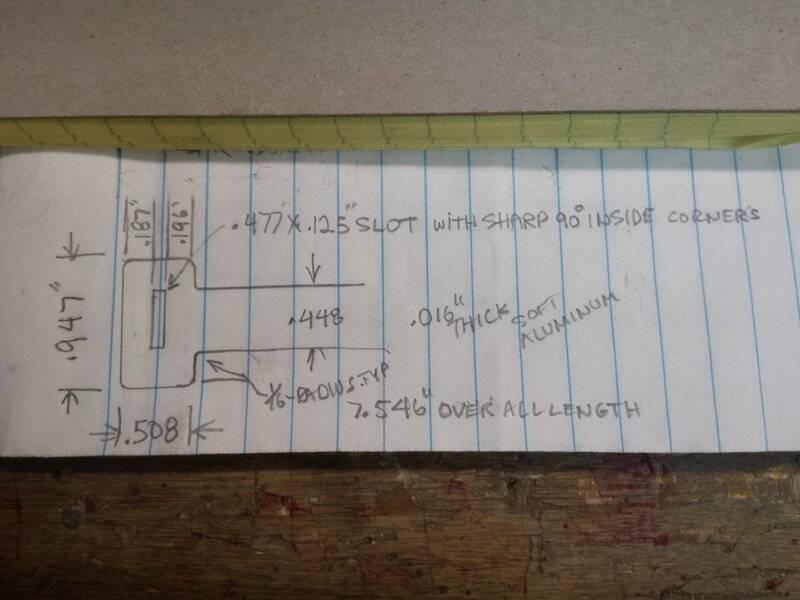 .187"
.196"
.477" X .125" SLOT WITH SHARP 90° INSIDE CORNERS
.947"
.448
.016" THICK SOFT
ALUMINUM
RADIUS TYP
7.546" OVER ALL LENGTH
.508